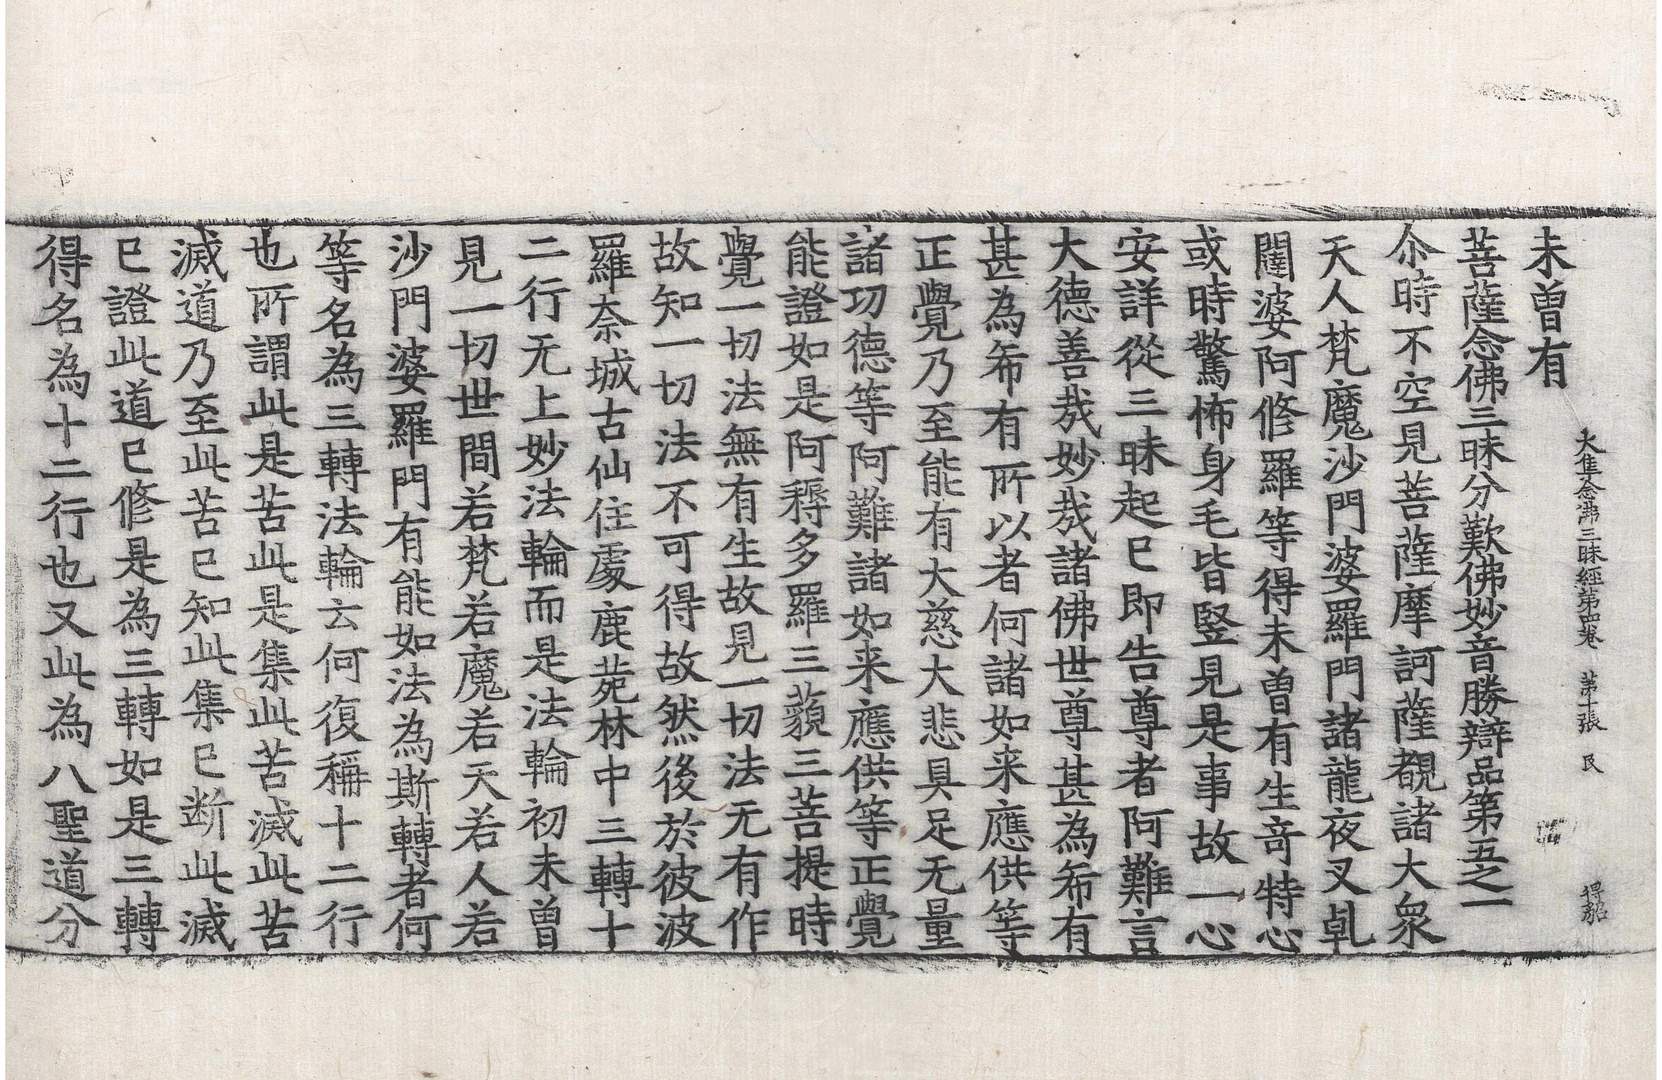 大集念佛三昧經第四卷 第十張 民
未曾有
菩薩念佛三昧分歎佛妙音勝辯品第五之一
尒時不空見菩薩摩訶薩覩諸大衆
天人梵魔沙門婆羅門諸龍夜叉乹
闥婆阿修羅等得未曾有生竒特心
或時驚怖身毛皆竪見是事故一心
安詳從三昧起已即告尊者阿難言
大德善㢤妙㢤諸佛世尊甚為希有
甚為希有所以者何諸如来應供等
正覺乃至能有大慈大悲具足无量
諸功德等阿難諸如来應供等正覺
能證如是阿耨多羅三藐三菩提時
覺一切法無有生故見一切法无有作
故知一切法不可得故然後於彼波
羅奈城古仙住處鹿菀林中三轉十
二行无上妙法輪而是法輪初未曾
見一切世間若梵若魔若天若人若
沙門婆羅門有能如法為斯轉者何
等名為三轉法輪云何復稱十二行
也所謂此是苦此是集此苦滅此苦
滅道乃至此苦已知此集已断此滅
已證此道已修是為三轉如是三轉
得名為十二行也又此為八聖道分